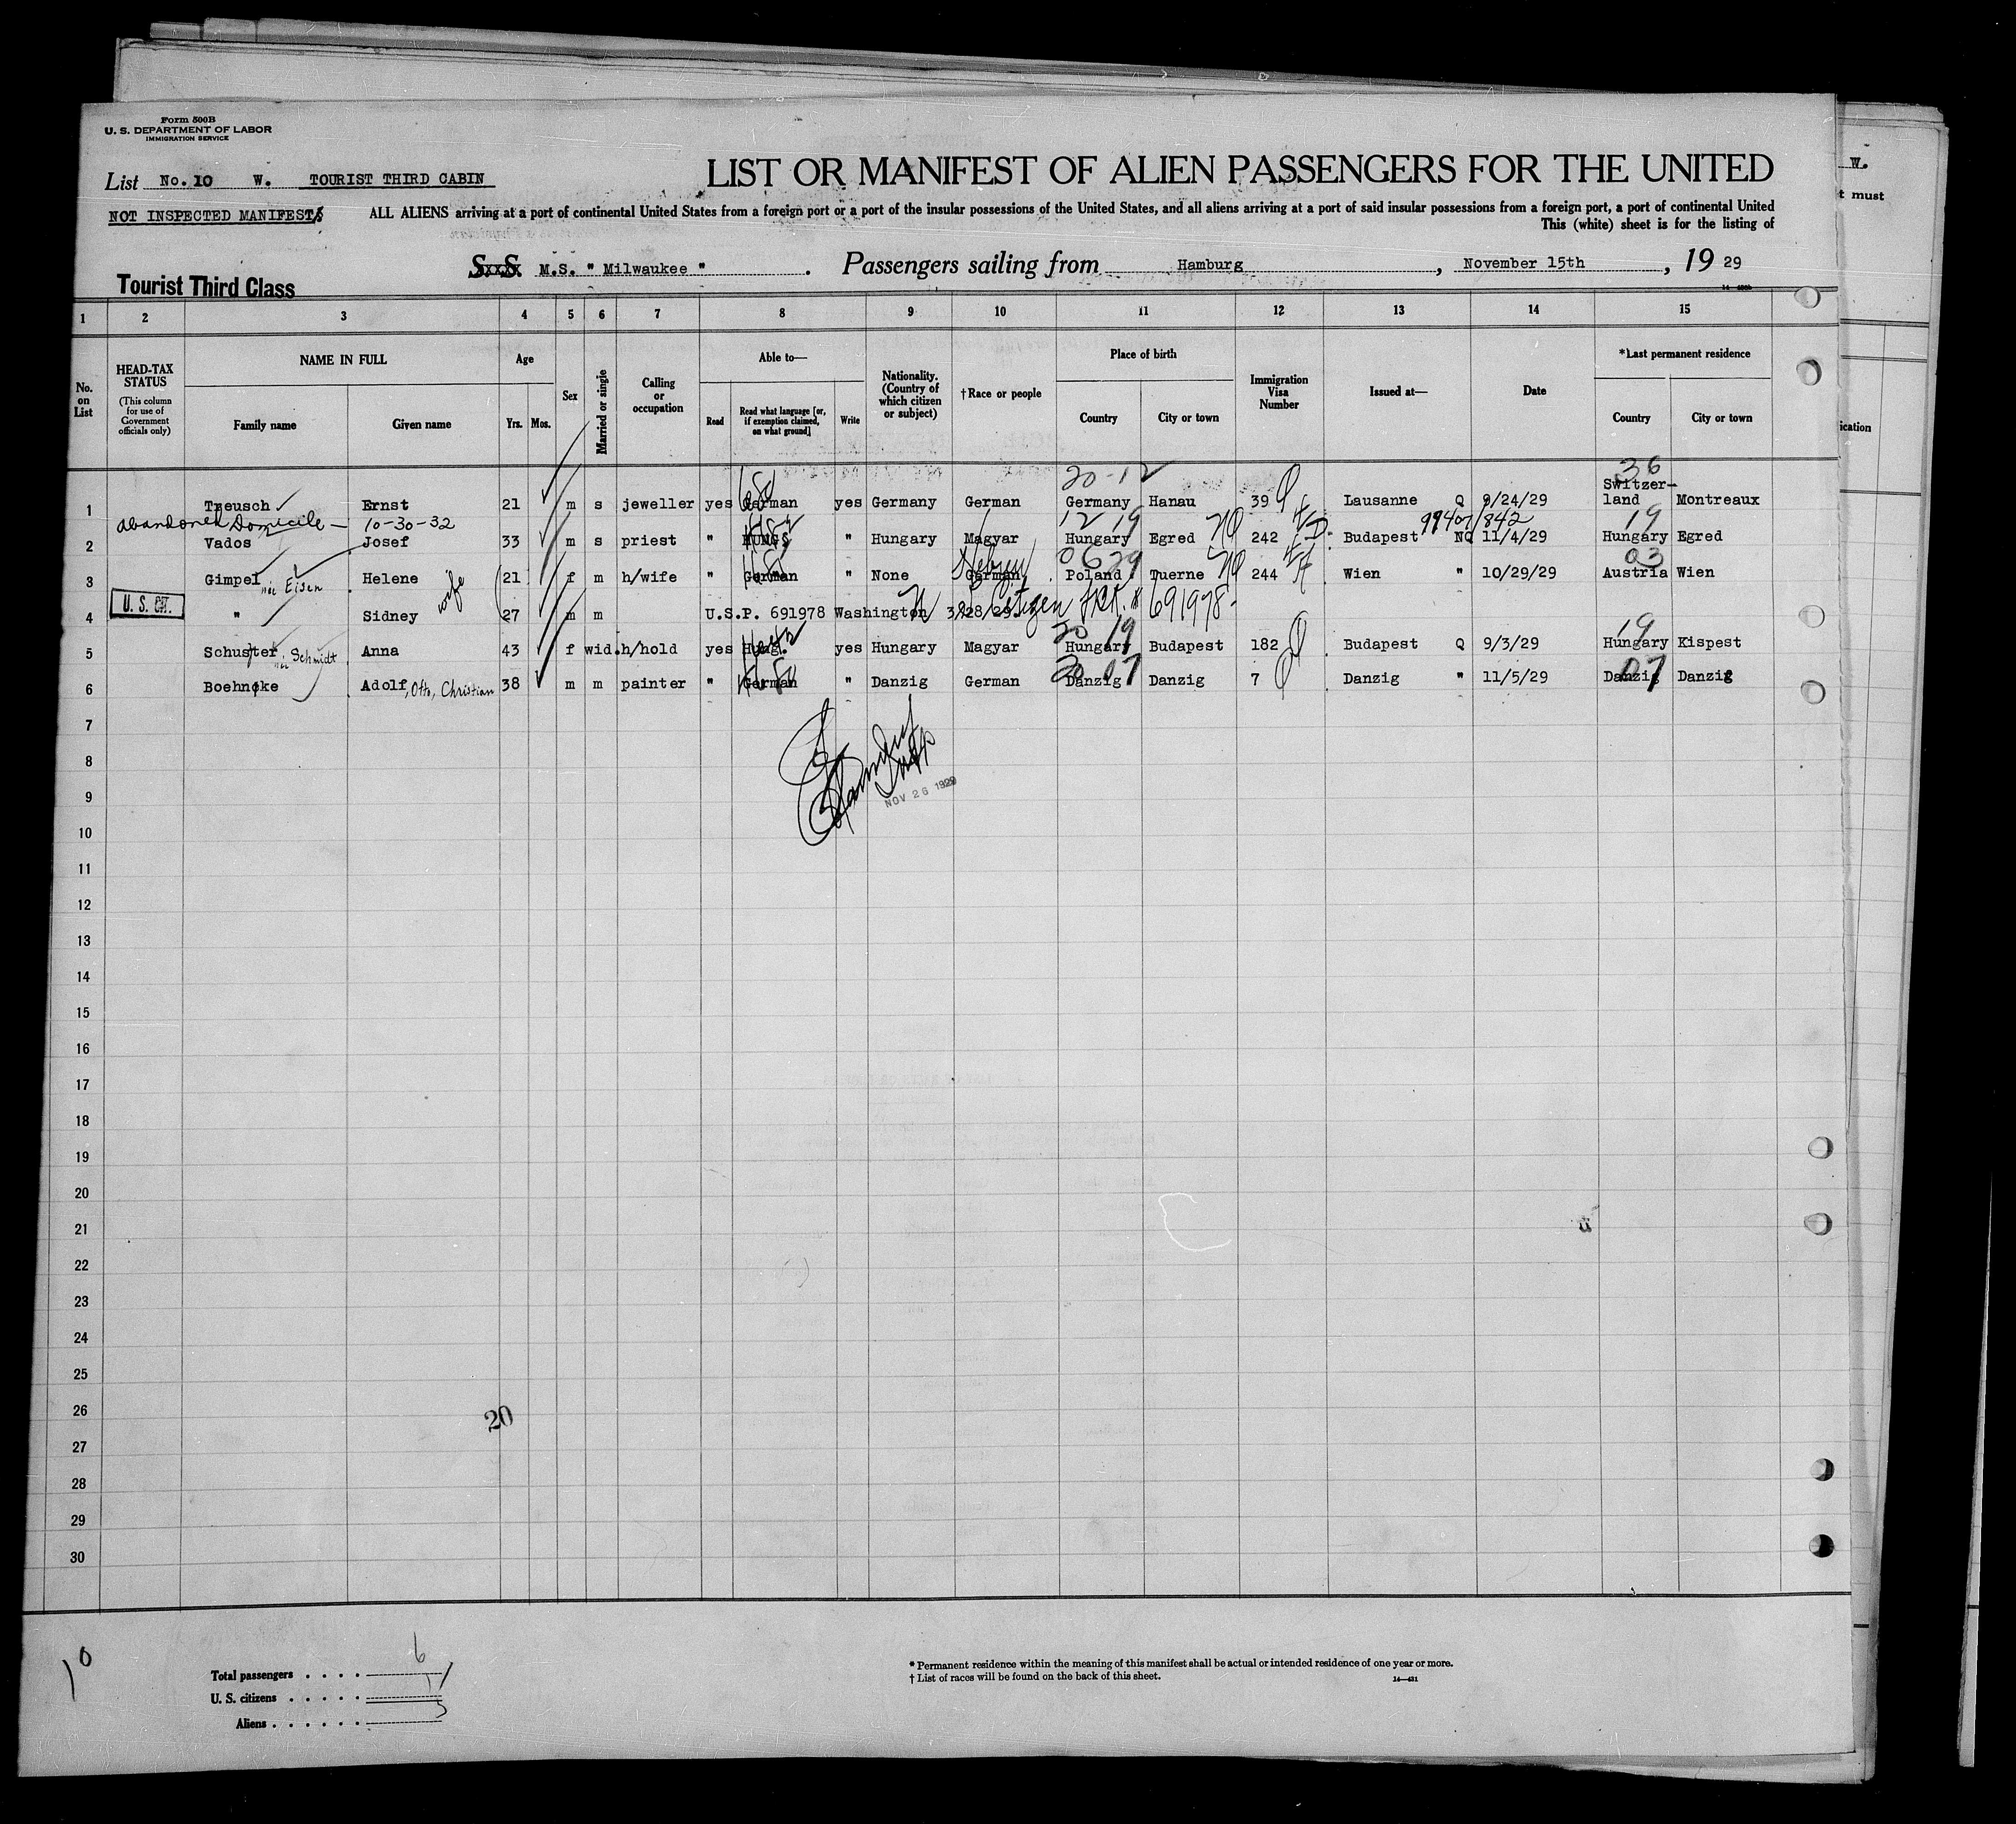 Form 500B
U. S. DEPARTMENT OF LABOR
IMMIGRATION SERVICE
List No. 10 W. TOURIST THIRD CABIN
LIST OR MANIFEST OF ALIEN PASSENGERS FOR THE UNITED
NOT INSPECTED MANIFEST
ALL ALIENS arriving at a port of continental United States from a foreign port or a port of the insular possessions of the United States, and all aliens arriving at a port of said insular possessions from a foreign port, a port of continental United
This (white) sheet is for the listing of
Tourist Third Class
S.S. M.S. " Milwaukee ". Passengers sailing from Hamburg, November 15th, 19 29
1 2 3 4 5 6 7 8 9 10 11 12 13 14 15
No. on List
HEAD-TAX STATUS (This column for use of Government officials only)
NAME IN FULL
Family name
Given name
Age
Yrs. Mos.
Sex
Married or single
Calling or occupation
Able to—
Read
Read what language [or, if exemption claimed, on what ground]
Write
Nationality. (Country of which citizen or subject)
†Race or people
Place of birth
Country
City or town
Immigration Visa Number
Issued at—
Date
*Last permanent residence
Country
City or town
20-12 36
1 Treusch Ernst 21 m s jeweller yes German yes Germany German Germany Hanau 39 Lausanne Q 9/24/29 Switzer-land Montreaux
abandoned Domicile — 10-30-32 12 19 19
2 Vados Josef 33 m s priest " " Hungary Magyar Hungary Egred 242 Budapest NQ 11/4/29 Hungary Egred
Hebrew 03
3 Gimpel née Eisen Helene wife 21 f m h/wife " German " None German Poland Tuerne 244 Wien " 10/29/29 Austria Wien
U. S. CIT.
4 " Sidney 27 m m U.S.P. 691978 Washington 3/28/29. Citizen 691978-
20 19 19
5 Schuster née Schmidt Anna 43 f wid. h/hold yes Hung. yes Hungary Magyar Hungary Budapest 182 Budapest Q 9/3/29 Hungary Kispest
6 Boehncke Adolf, Otto, Christian 38 m m painter " German " Danzig German Danzig Danzig 7 Danzig " 11/5/29 Danzig Danzig
7
8
NOV 26 1929
9
10
11
12
13
14
15
16
17
18
19
20
21
22
23
24
25
26
20
27
28
29
30
10
Total passengers . . . . 6
U. S. citizens . . . . . 1
Aliens . . . . . . 5
* Permanent residence within the meaning of this manifest shall be actual or intended residence of one year or more.
† List of races will be found on the back of this sheet.
14—421
W.
t must
ication